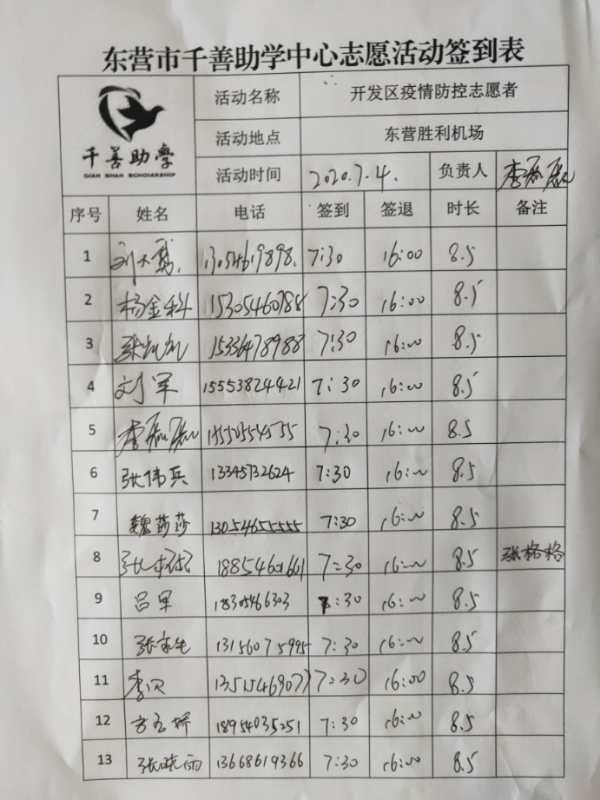 东营市千善助学中心志愿活动签到表
千善助學
QIAN SHAN SCHOLARSHIP
活动名称 开发区疫情防控志愿者
活动地点 东营胜利机场
活动时间 2020.7.4. 负责人 李磊磊
序号 姓名 电话 签到 签退 时长 备注
1 7:30 16:00 8.5
2 杨金科 15305460788 7:30 16:00 8.5
3 7:30 16:00 8.5
4 刘军 15553824421 7:30 16:00 8.5
5 李磊磊 7:30 16:00 8.5
6 张伟兵 13345732624 7:30 16:00 8.5
7 魏莎莎 13054655555 7:30 16:00 8.5
8 张格格 7:30 16:00 8.5 张格格
9 吕军 18305466303 7:30 16:00 8.5
10 13156075995 7:30 16:00 8.5
11 7:30 16:00 8.5
12 18954035251 7:30 16:00 8.5
13 张晓雨 13668619366 7:30 16:00 8.5